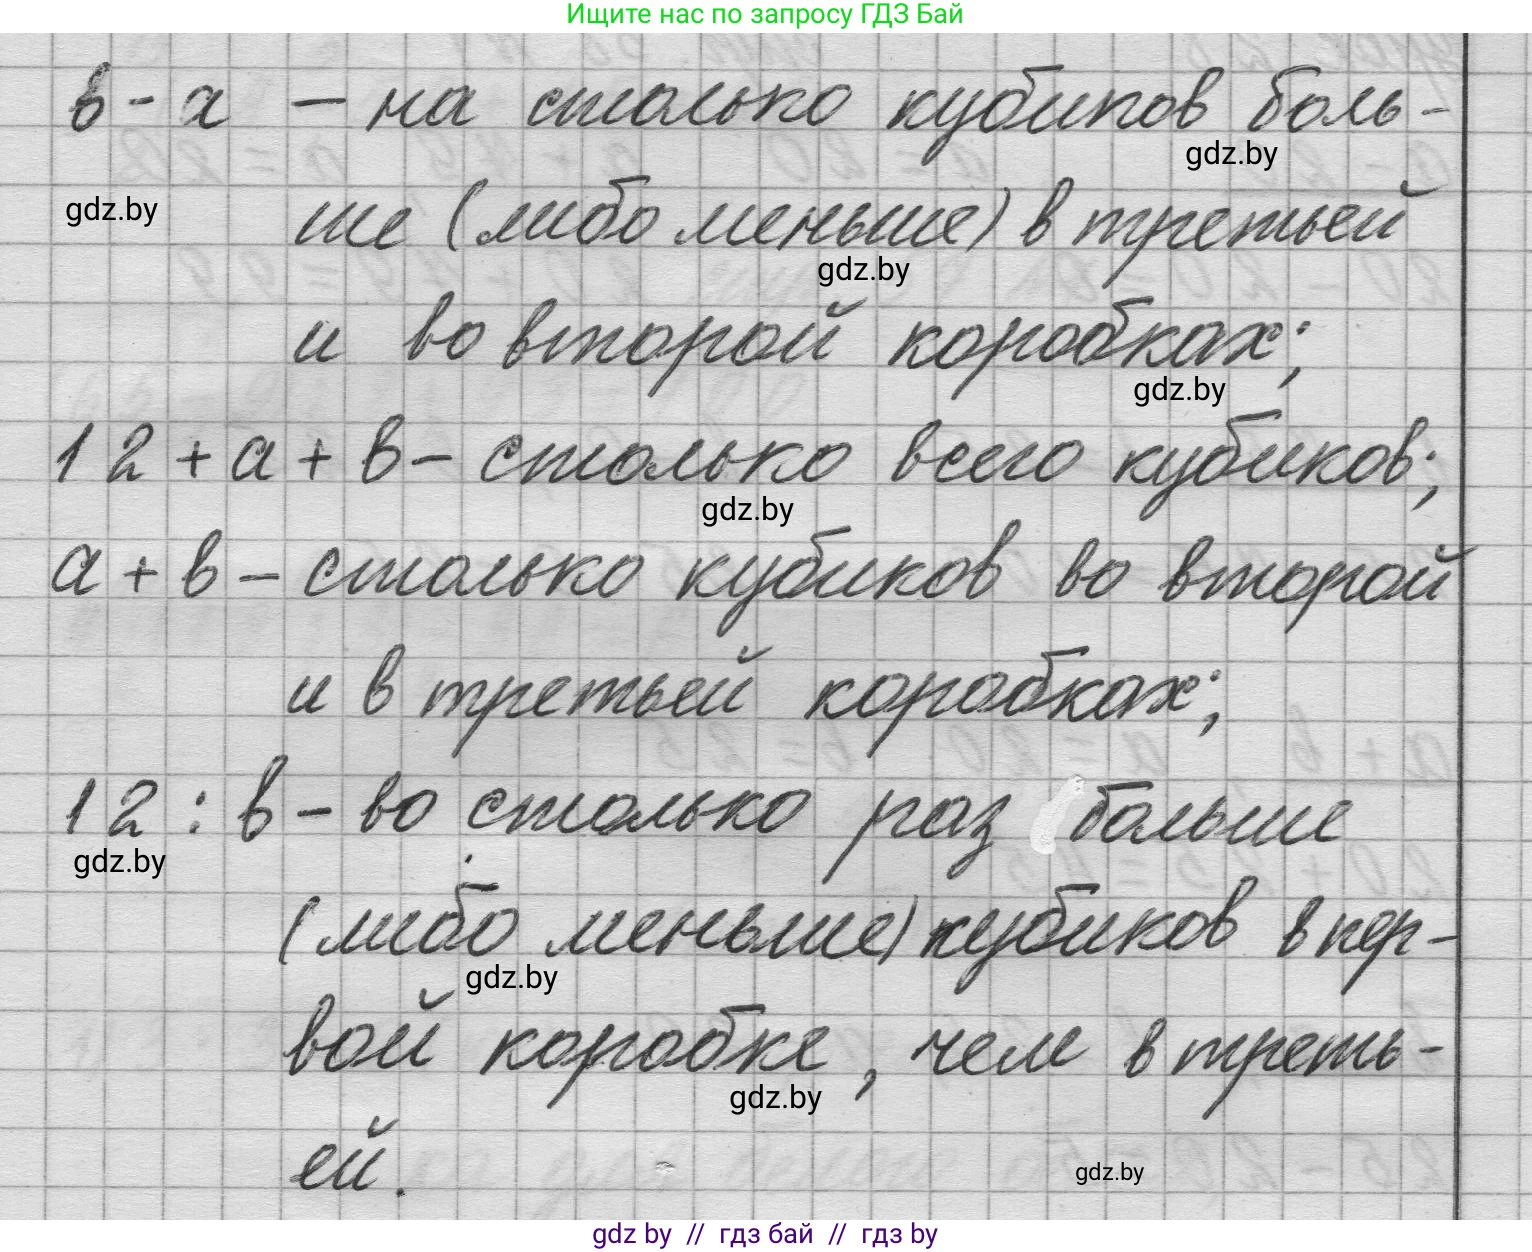 Ищите нас по запросу ГДЗ Бай
в - а — на столько кубиков боль-
gdz.by
ше (либо меньше) в третьей
gdz.by
gdz.by
и во второй коробках;
gdz.by
12 + а + в - столько всего кубиков;
gdz.by
а + в - столько кубиков во второй
и в третьей коробках;
12 : в - во столько раз больше
gdz.by
(либо меньше) кубиков в пер-
gdz.by
вой коробке, чем в треть-
gdz.by
ей.
gdz.by
gdz by // гдз бай // гдз by